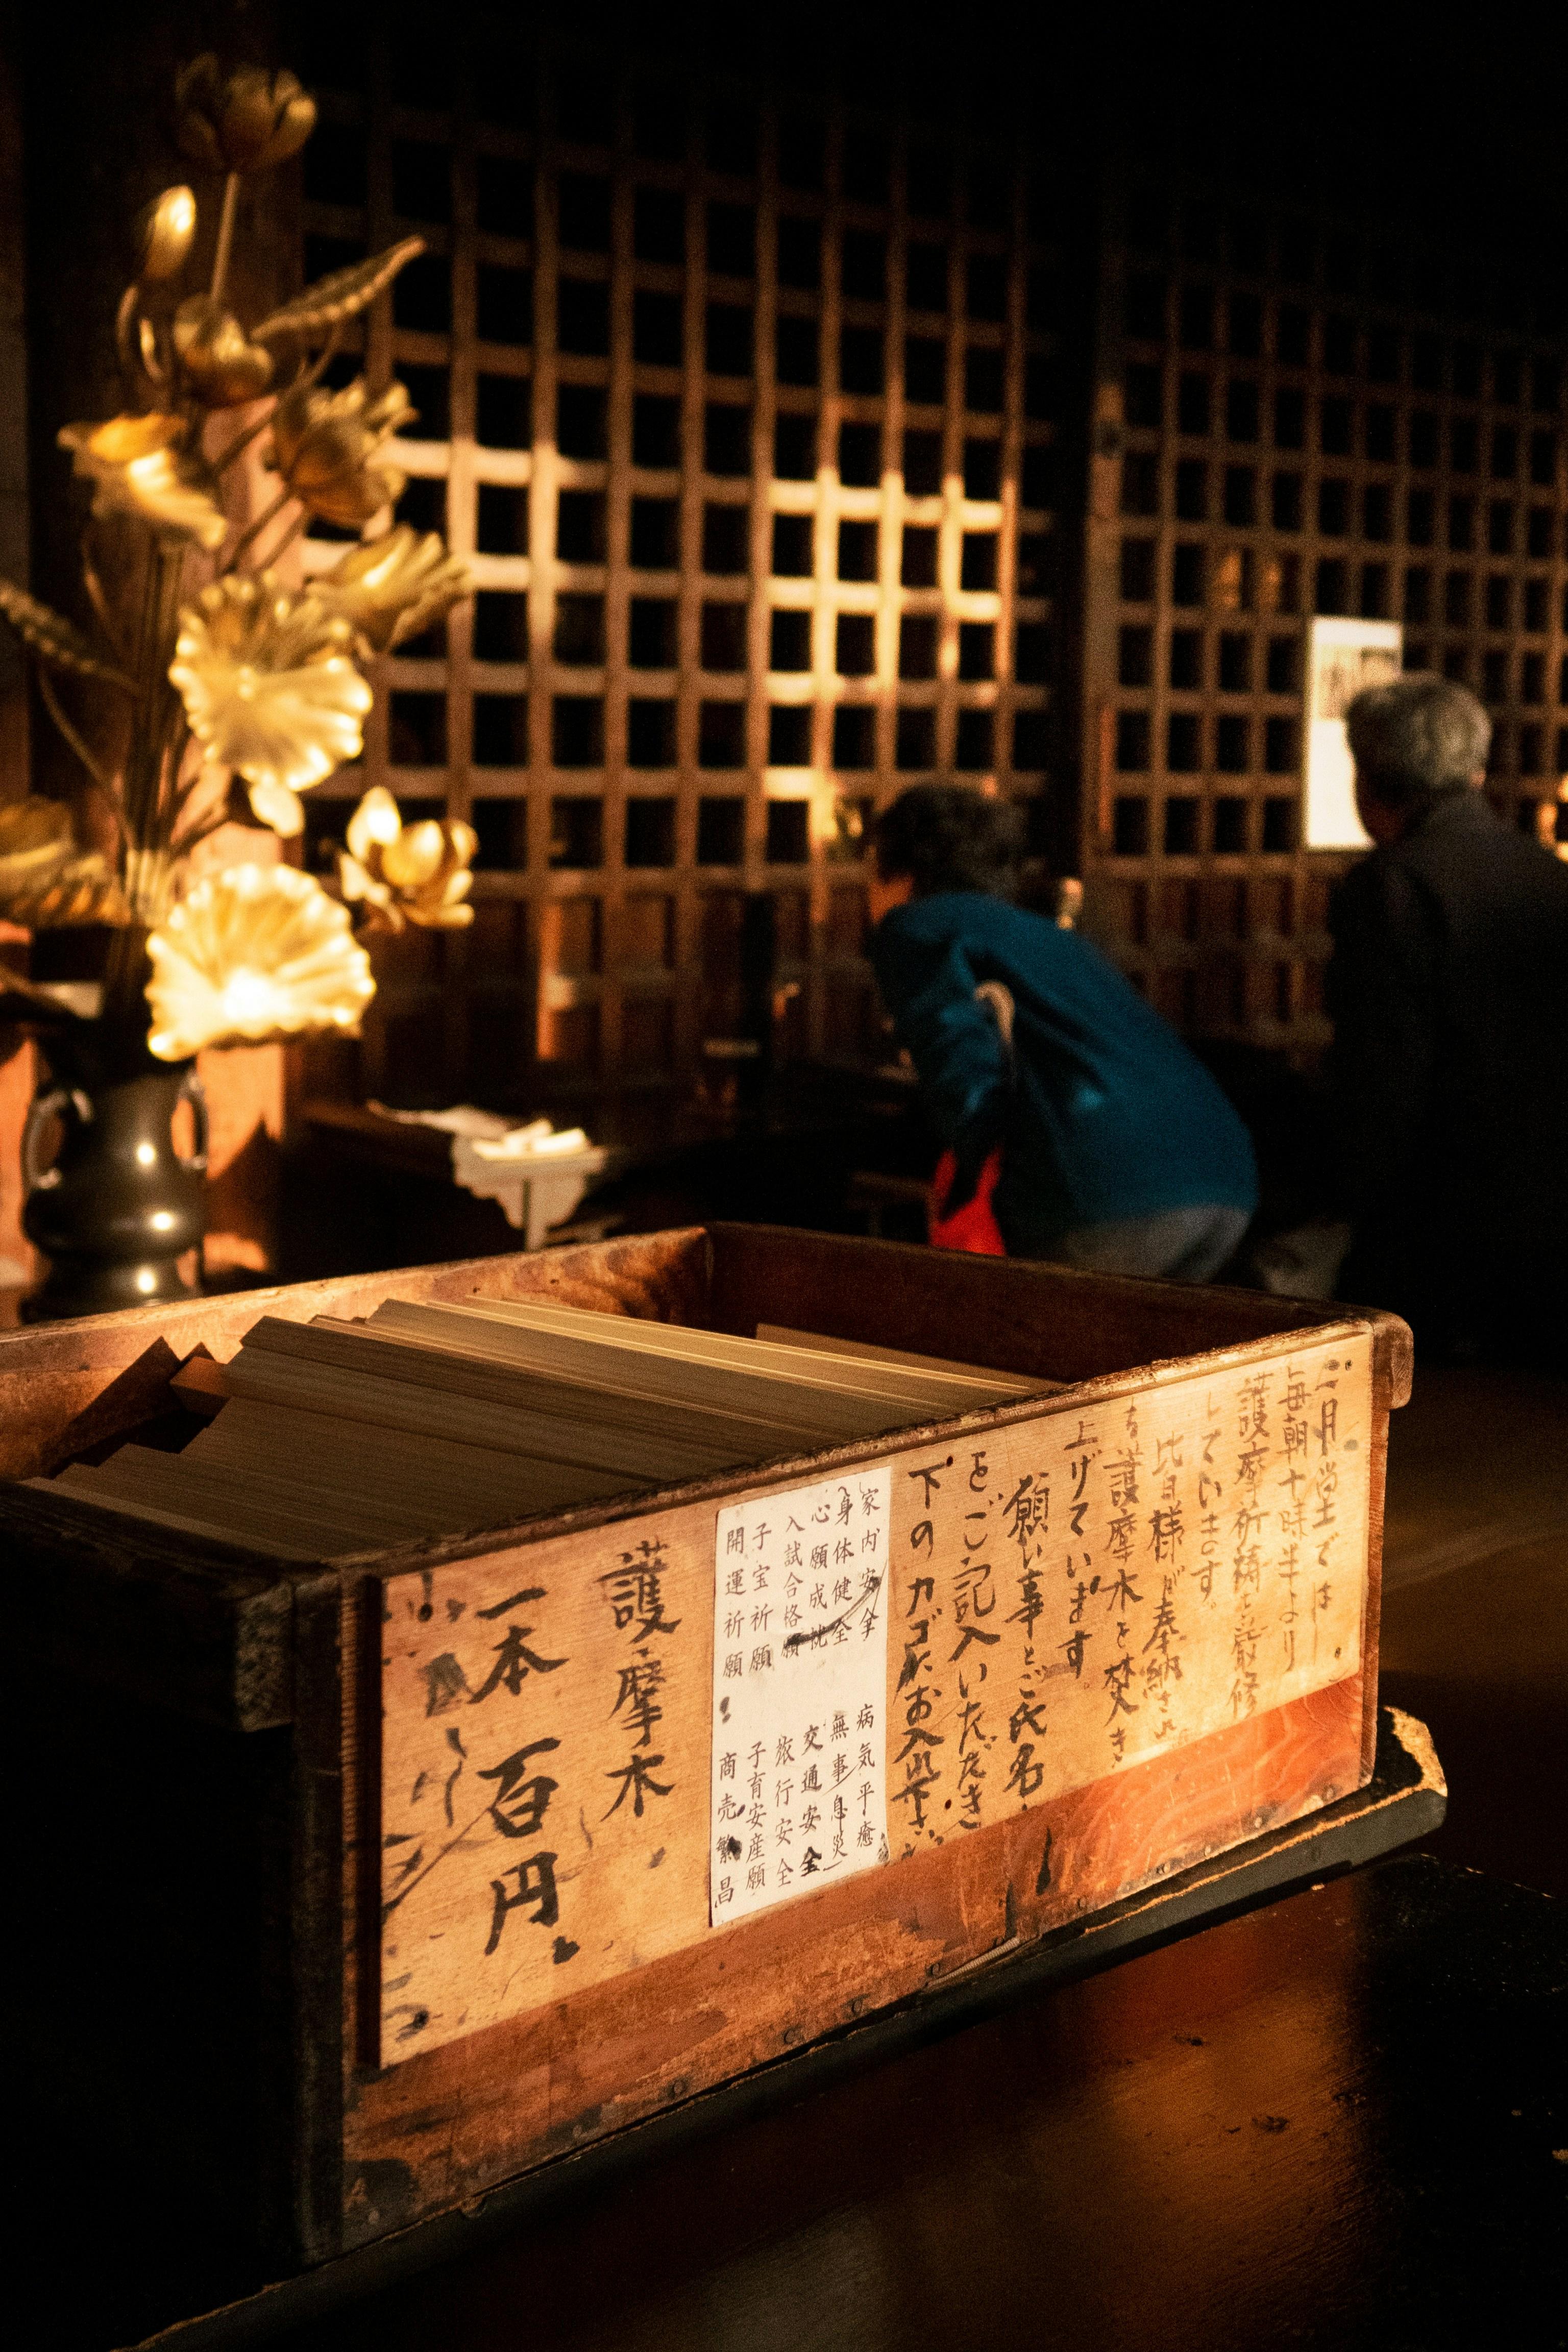 二月堂では
毎朝十時半より
護摩祈祷を厳修
しています。
皆様が奉納され
る護摩木を焚き
上げています。
願い事とご氏名
をご記入いただき
下のカゴにお入れ下さい
家内安全
身体健全
心願成就
入試合格願
子宝祈願
開運祈願
病気平癒
無事息災
交通安全
旅行安全
子育安産願
商売繁昌
護摩木
一本 百円